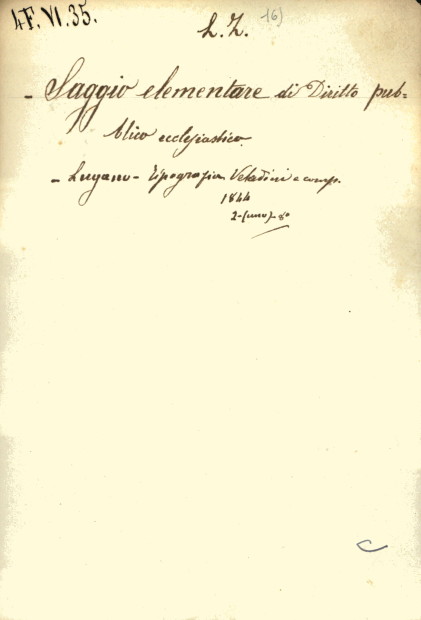 4F. VI. 35.
L. Z.
- Saggio elementare di Diritto pub=
blico ecclesiastico.
- Lugano - Tipografia Veladini e comp.
1844
2-(uno)-8º